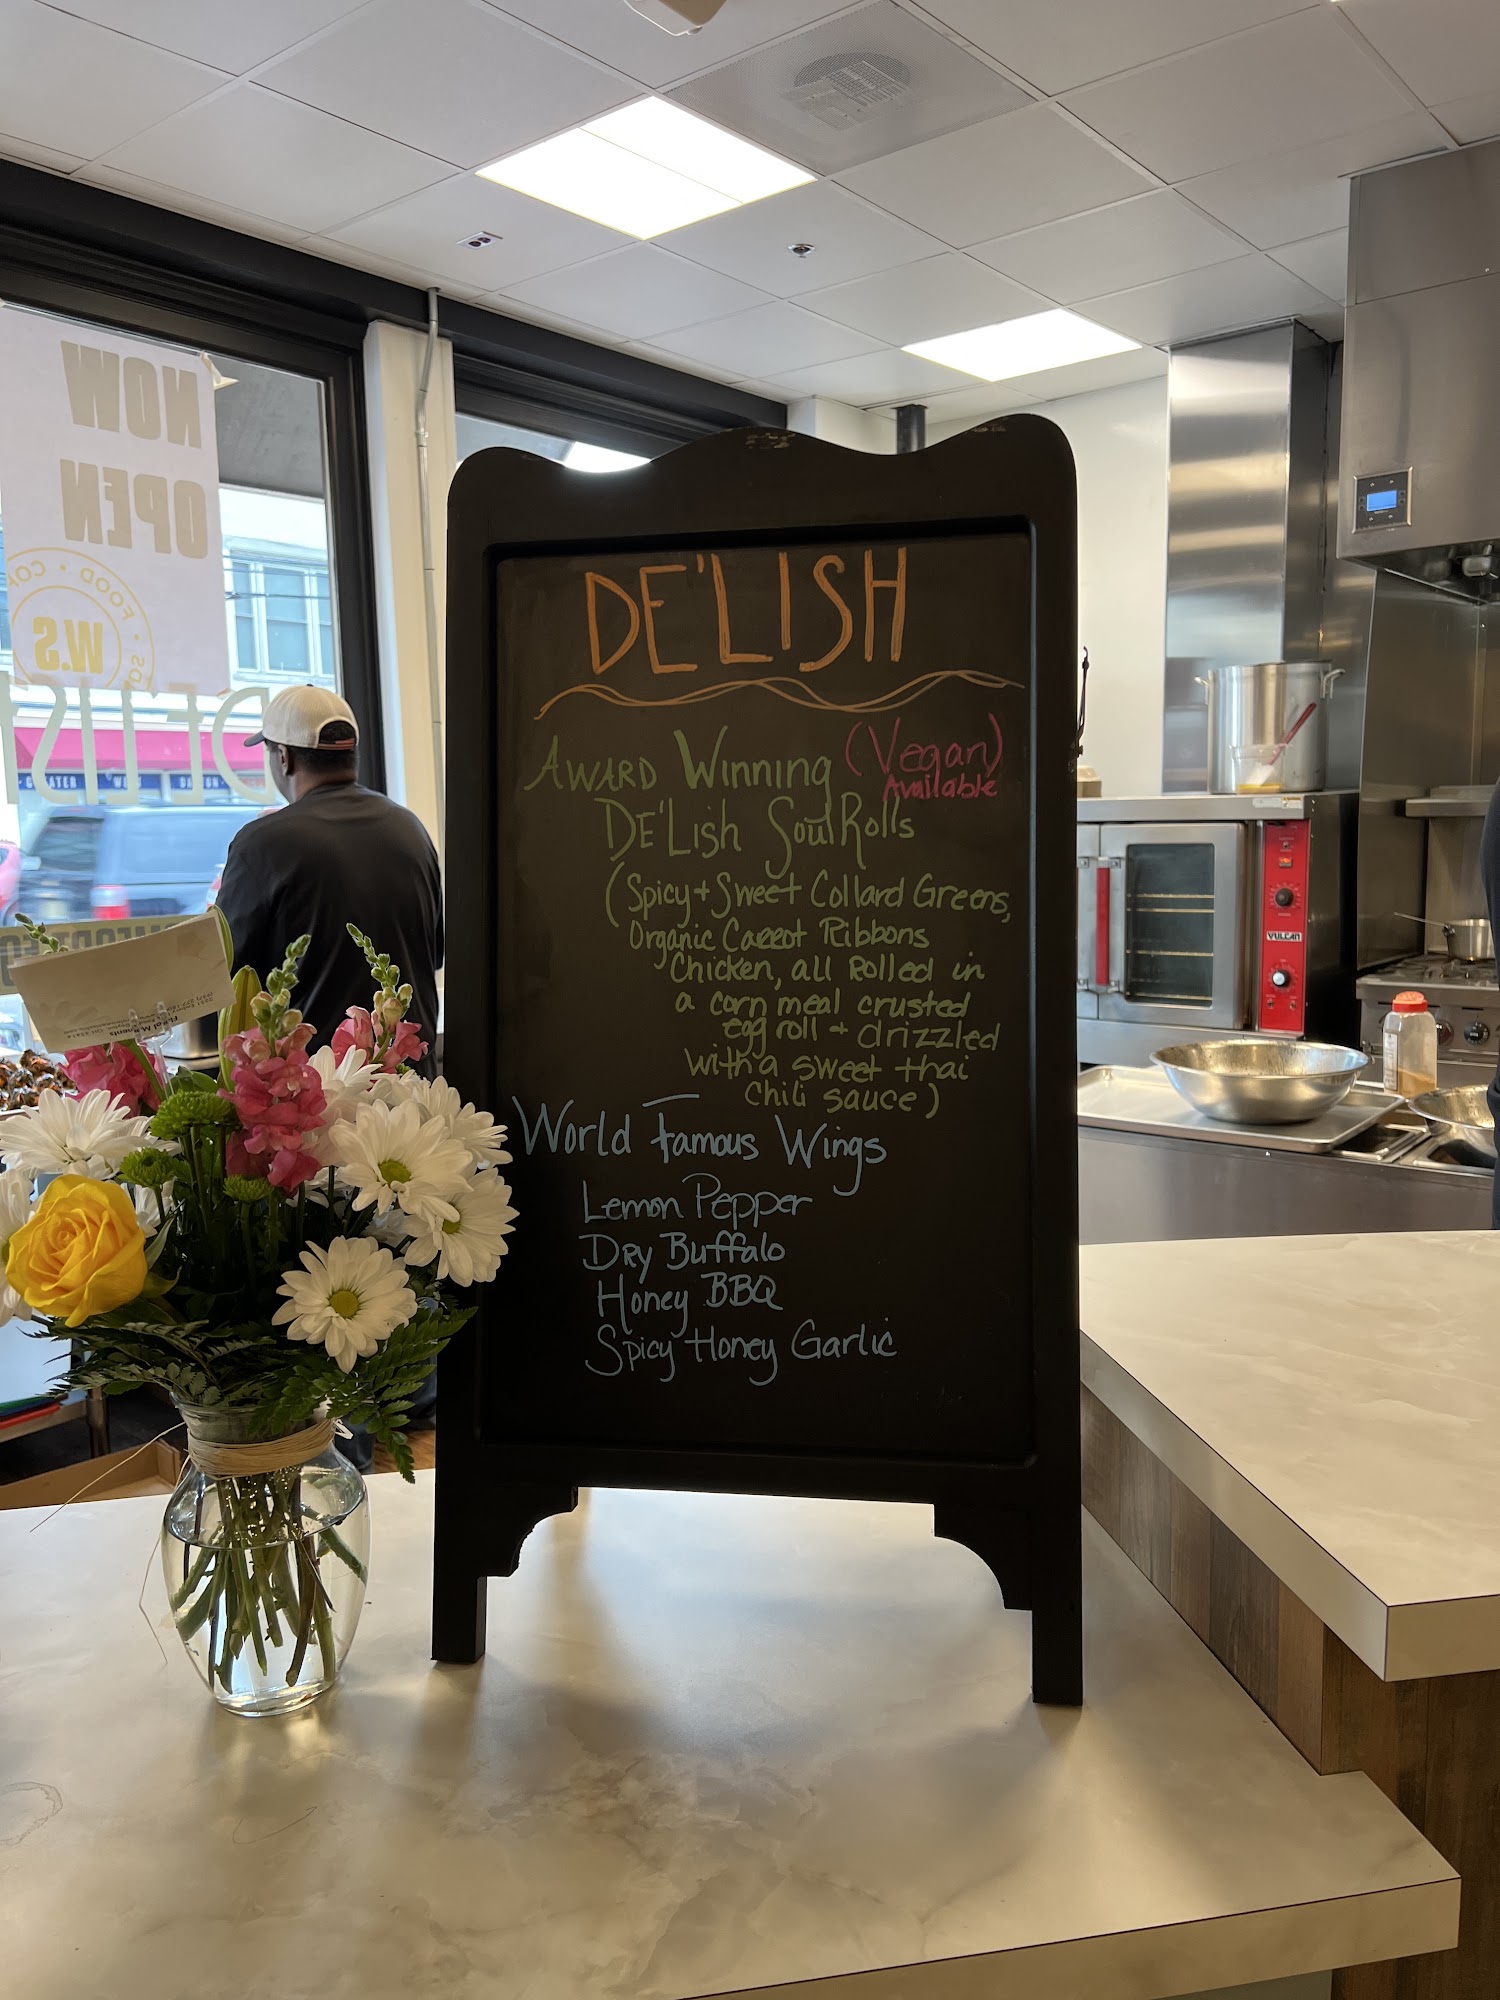 DE'LISH
AWARD Winning (Vegan)
Available
DE'Lish Soul Rolls
(Spicy + Sweet Collard Greens,
Organic Carrot Ribbons
Chicken, all Rolled in
a corn meal crusted
egg roll + drizzled
with a sweet thai
Chili sauce)
World Famous Wings
Lemon Pepper
Dry Buffalo
Honey BBQ
Spicy Honey Garlic
NOW
OPEN
FOOD
W.S
VULCAN